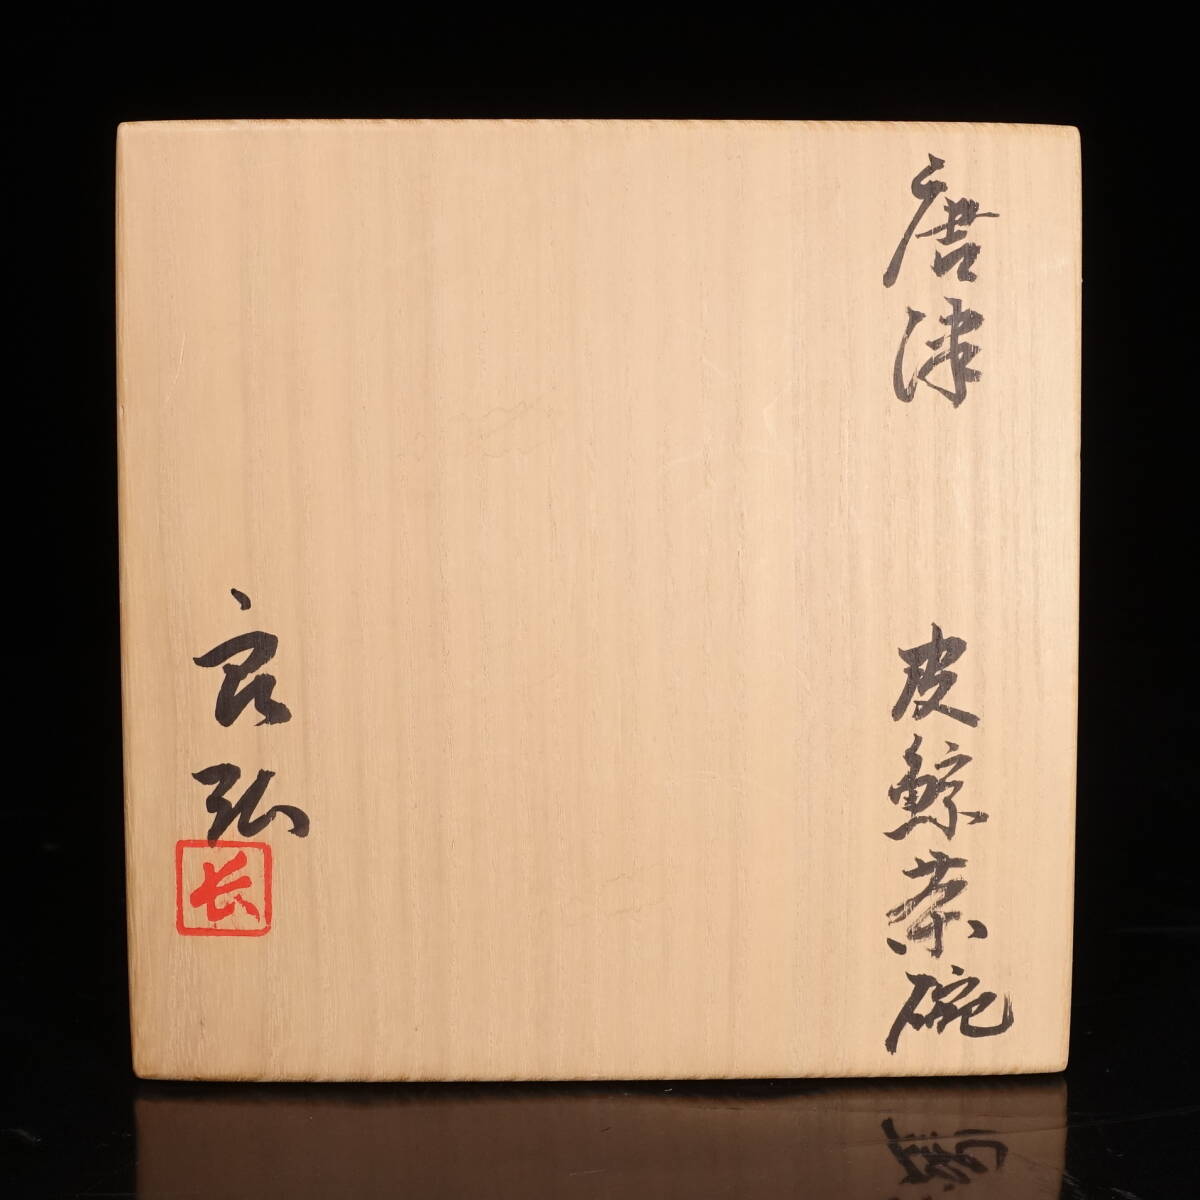 唐津 皮鯨茶碗
良弘
长